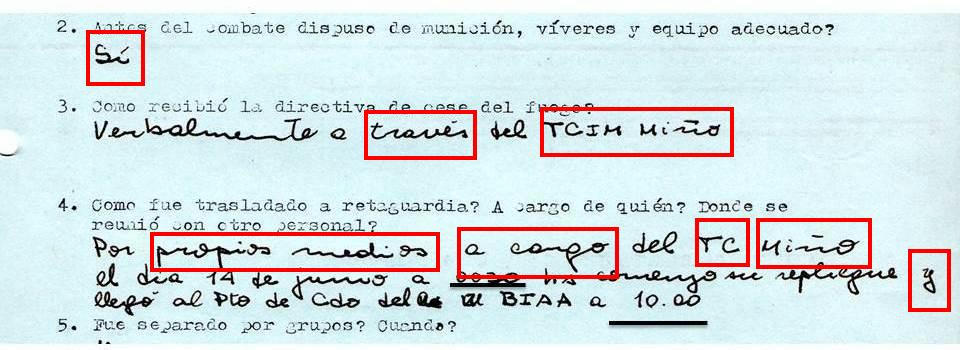 2. Antes del combate dispuso de munición, víveres y equipo adecuado?
Sí
3. Como recibió la directiva de cese del fuego?
Verbalmente a través del TCIM Miño
4. Como fue trasladado a retaguardia? A cargo de quién? Donde se
reunió con otro personal?
Por propios medios a cargo del TC Miño
el día 14 de junio a 0030 hs comenzo su repliegue y
llegó al Pto de Cdo del BIAA a 10.00
5. Fue separado por grupos? Cuando?